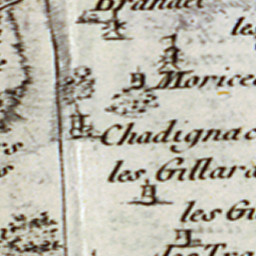 Brandet
Morice
Chadignac
les Gillar
les Gu
les Tra